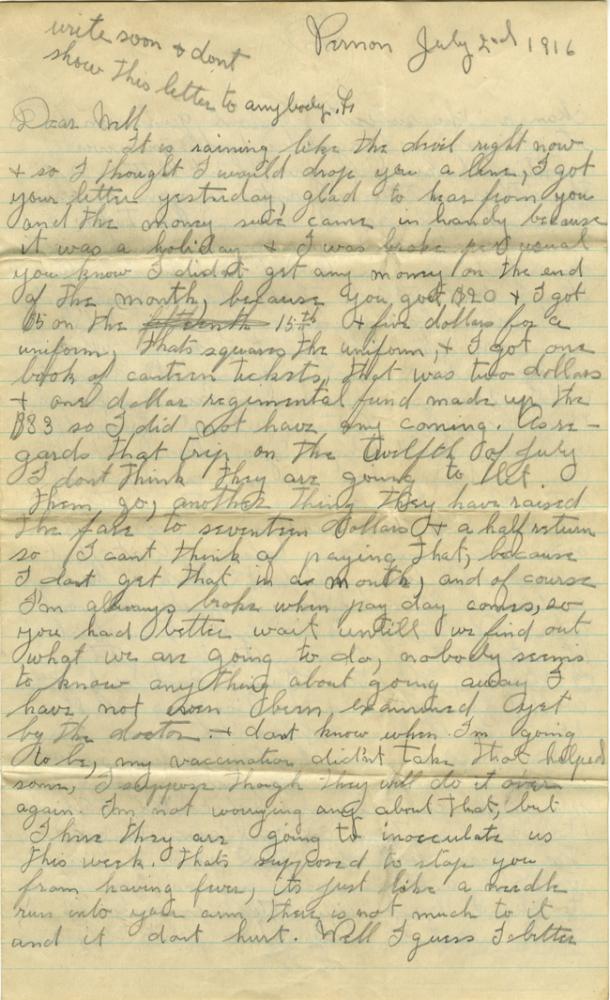 write soon & dont
show this letter to anybody.
Vernon July 2nd 1916
Dear
It is raining like the devil right now
& so I thought I would drop you a line, I got
your letter yesterday, glad to hear from you
and the money sure came in handy because
it was a holiday & I was broke per usual
you know I didnt get any money on the end
of the month, because you got $20 & I got
$5 on the fifteenth 15th & five dollars for a
uniform, thats squares the uniform, & I got one
book of canteen tickets, that was two dollars
& one dollar regimental fund made up the
$33 so I did not have any coming. As re-
gards that trip on the twelfth of July
I dont think they are going to let
them go, another thing they have raised
the fare to seventeen dollars & a half return
so I cant think of paying that, because
I dont get that in a month, and of course
I'm always broke when pay day comes, so
you had better wait untill we find out
what we are going to do, nobody seems
to know anything about going away I
have not even been examined yet
by the doctor & dont know when I'm going
to be, my vaccination didn't take that helped
some, I suppose though they will do it over
again. I'm not worrying any about that, but
I hear they are going to inocculate us
this week. Thats supposed to stop you
from having fever, its just like a needle
run into your arm, there is not much to it
and it dont hurt. Well I guess I better